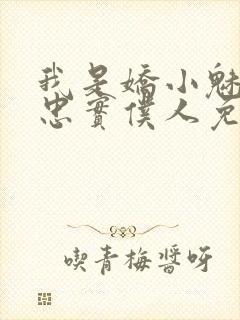 我是嬌小魅
忠實僕人兔
喫青梅醬呀